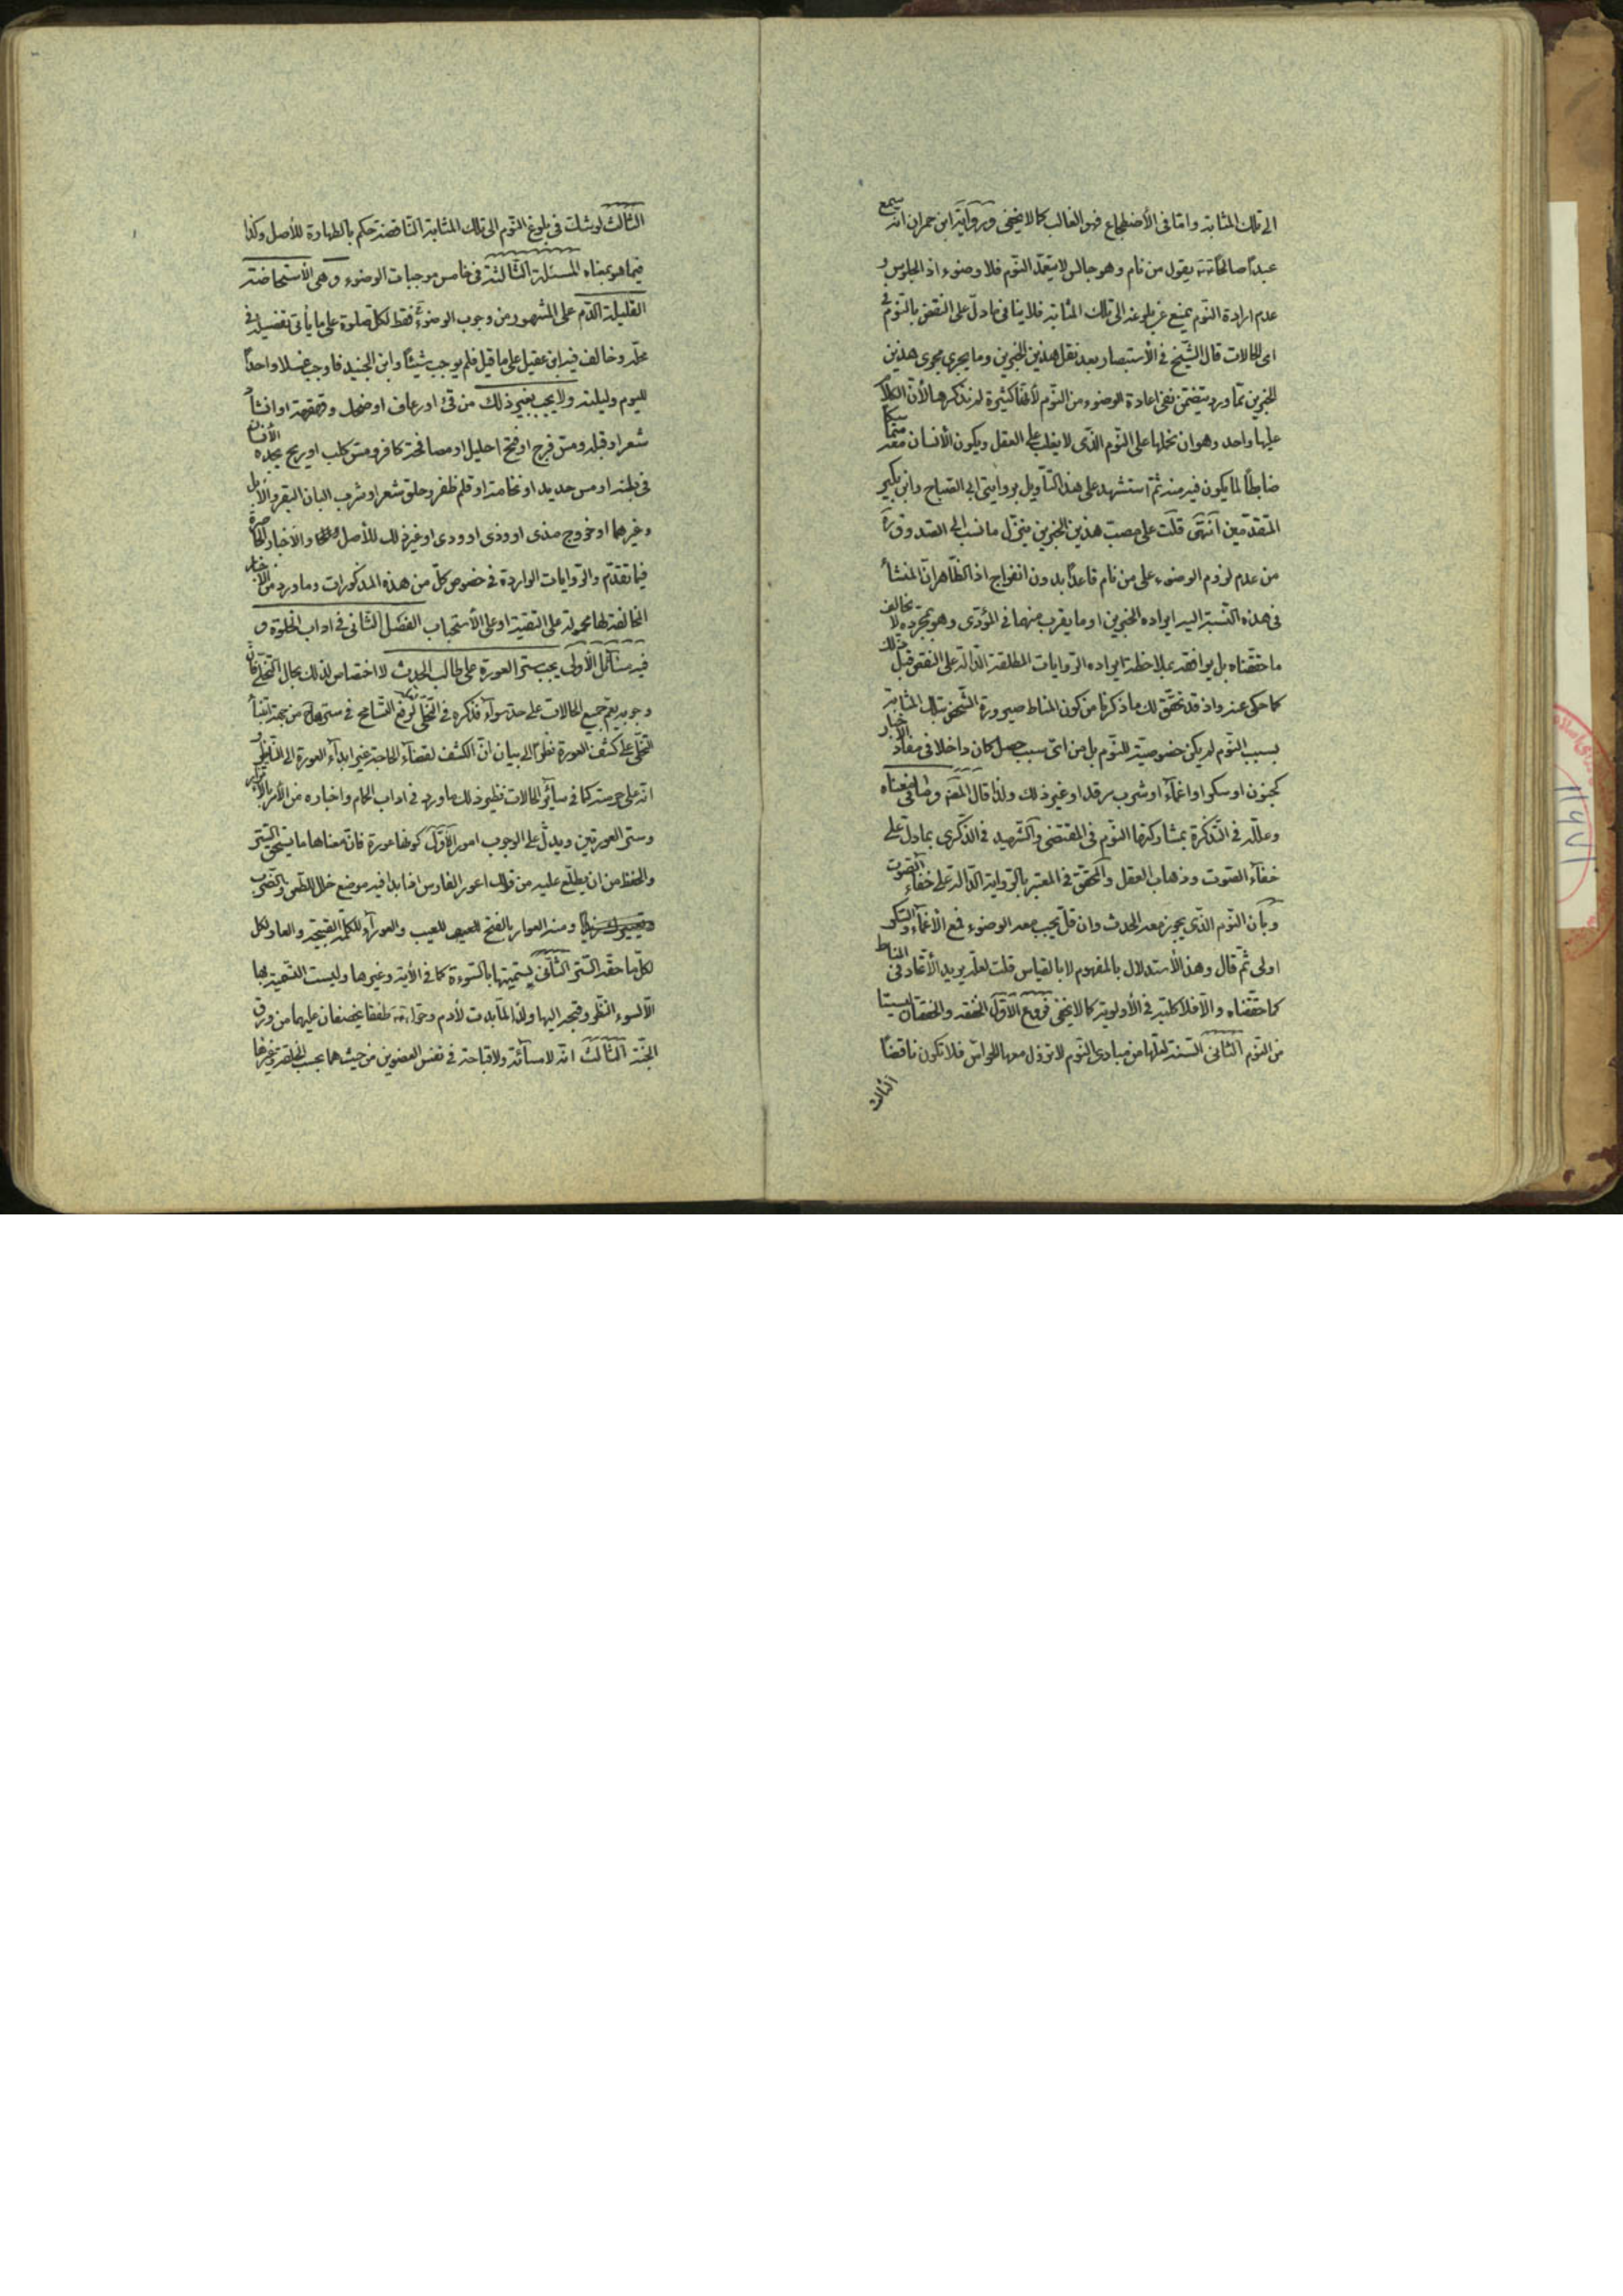 الى تلك المثابة واما فى الأضطجاع فهو الغالب كما لا يخفى ورواية ابن حمران انه سمع
عبدا صالحا يقول من نام وهو جالس لا يتعمد النوم فلا وضوء اذ الجلوس و
عدم ارادة النوم يمنع عن بلوغه الى تلك المثابة فلا ينافى ما دل على النقض بالنوم فى
اى الحالات قال الشيخ فى الأستبصار بعد نقل هذين الخبرين وما يجرى مجرى هذين
الخبرين مما ورد يتضمن نفى اعادة الوضوء من النوم لأنها كثيرة لم نذكرها لأن الكلام
عليها واحد وهو ان نحملها على النوم الذى لا يغلب على العقل ويكون الأنسان معه متماسكا
ضابطا لما يكون فيه منه ثم استشهد على هذا التأويل بروايتى ابى الصباح وابن بكير
المتقدمين انتهى قلت على مصب هذين الخبرين ينزل ما نسب الى الصدوق ره
من عدم لزوم الوضوء على من نام قاعدا بدون انفراج اذ الظاهر ان المنشأ
فى هذه النسبة اليه ايراده الخبرين او ما يقرب منهما فى المؤدى وهو بمجرده لا يخالف
ما حققناه بل يوافقه بملاحظة ايراده الروايات المطلقة الدالة على النقض قبل ذلك
كما حكى عنه واذ قد تحقق لك ما ذكرنا من كون المناط صيرورة الشخص بتلك المثابة
بسبب النوم لم يكن خصوصية للنوم بل من اى سبب حصل كان داخلا فى مفاد الأخبار
كجنون او سكر او اغماء او شرب مرقد او غير ذلك ولذا قال المصنف وما فى معناه
وعلله فى التذكرة بمشاركتها النوم فى المقتضى والشهيد فى الذكرى بما دل على
خفاء الصوت وذهاب العقل والمحقق فى المعتبر بالرواية الدالة على خفاء الصوت
وبأن النوم الذى يجوز معه الحدث وان قل يجب معه الوضوء فمع الأغماء والسكر
اولى ثم قال وهذا الأستدلال بالمفهوم لا بالقياس قلت لعله يريد الأتحاد فى المناط
كما حققناه والا فلا كلية فى الأولوية كما لا يخفى فروع الأول الخفقه والخفقتان ليستا
من النوم الثانى السنة لعلها من مبادى النوم لا تزول معها الحواس فلا تكون ناقضا
الثالث
الثالث لو شك فى بلوغ النوم الى تلك المثابة الناقضة حكم بالطهارة للأصل وكذا
فيما هو بمعناه المسئلة الثالثة فى خامس موجبات الوضوء وهى الأستحاضة
القليلة الدم على المشهور من وجوب الوضوء فقط لكل صلوة على ما يأتى تفصيله فى
محله وخالف فيه ابن عقيل على ما قيل فلم يوجب شيئا وابن الجنيد فاوجب غسلا واحدا
لليوم وليلته ولا يجب بغير ذلك من قئ او رعاف او ضحك وقهقهة او انشاد
شعر او قبلة ومس فرج او فتح احليل او مصافحة كافر ومس كلب او ريح يجده الأنسان
فى بطنه او مس حديد او نخامة او قلم ظفر وحلق شعر او شرب البان البقر والابل
وغيرهما او خروج مذى او وذى او ودى او غير ذلك للأصل والاخبار الحاصرة
فيما تقدم والروايات الواردة فى خصوص كل من هذه المذكورات وما ورد من الأخبار
المخالفة لها محمولة على التقية او على الأستحباب الفصل الثانى فى اداب الخلوة و
فيه مسائل الأولى يجب ستر العورة على طالب الحدث لا اختصاص لذلك بحال التخلى فان
وجوبه يعم جميع الحالات على حد سواء فذكره فى التخلى لدفع التسامح فى سترها من جهة ابتناء
التخلى على كشف العورة نظرا الى بيان ان الكشف لقضاء الحاجة غير ابداء العورة الى الناظر و
انه على حرمته كما فى سائر الحالات نظير ذلك ما ورد فى اداب الحمام واخباره من الأمر بالأتزار
وستر العورتين ويدل على الوجوب امور الأول كونها عورة فان معناها ما يستحق الستر
والحفظ من ان يطلع عليه من قولك اعور الفارس اذا بدا فيه موضع خلل للطعن والضرب
ومنه العوار بالفتح للعيب والعوراء للكلمة القبيحة والعار لكل
لكل ما حقه الستر الثانى تسميتها بالسوءة كما فى الأية وغيرها وليست التسمية بها
الا لسوء النظر وقبحه اليها ولذا لما بدت لأدم وحواء طفقا يخصفان عليهما من ورق
الجنة الثالث انه لا مسائة ولا قباحة فى نفس العضوين من حيث هما بحسب الخلقة وغيرها